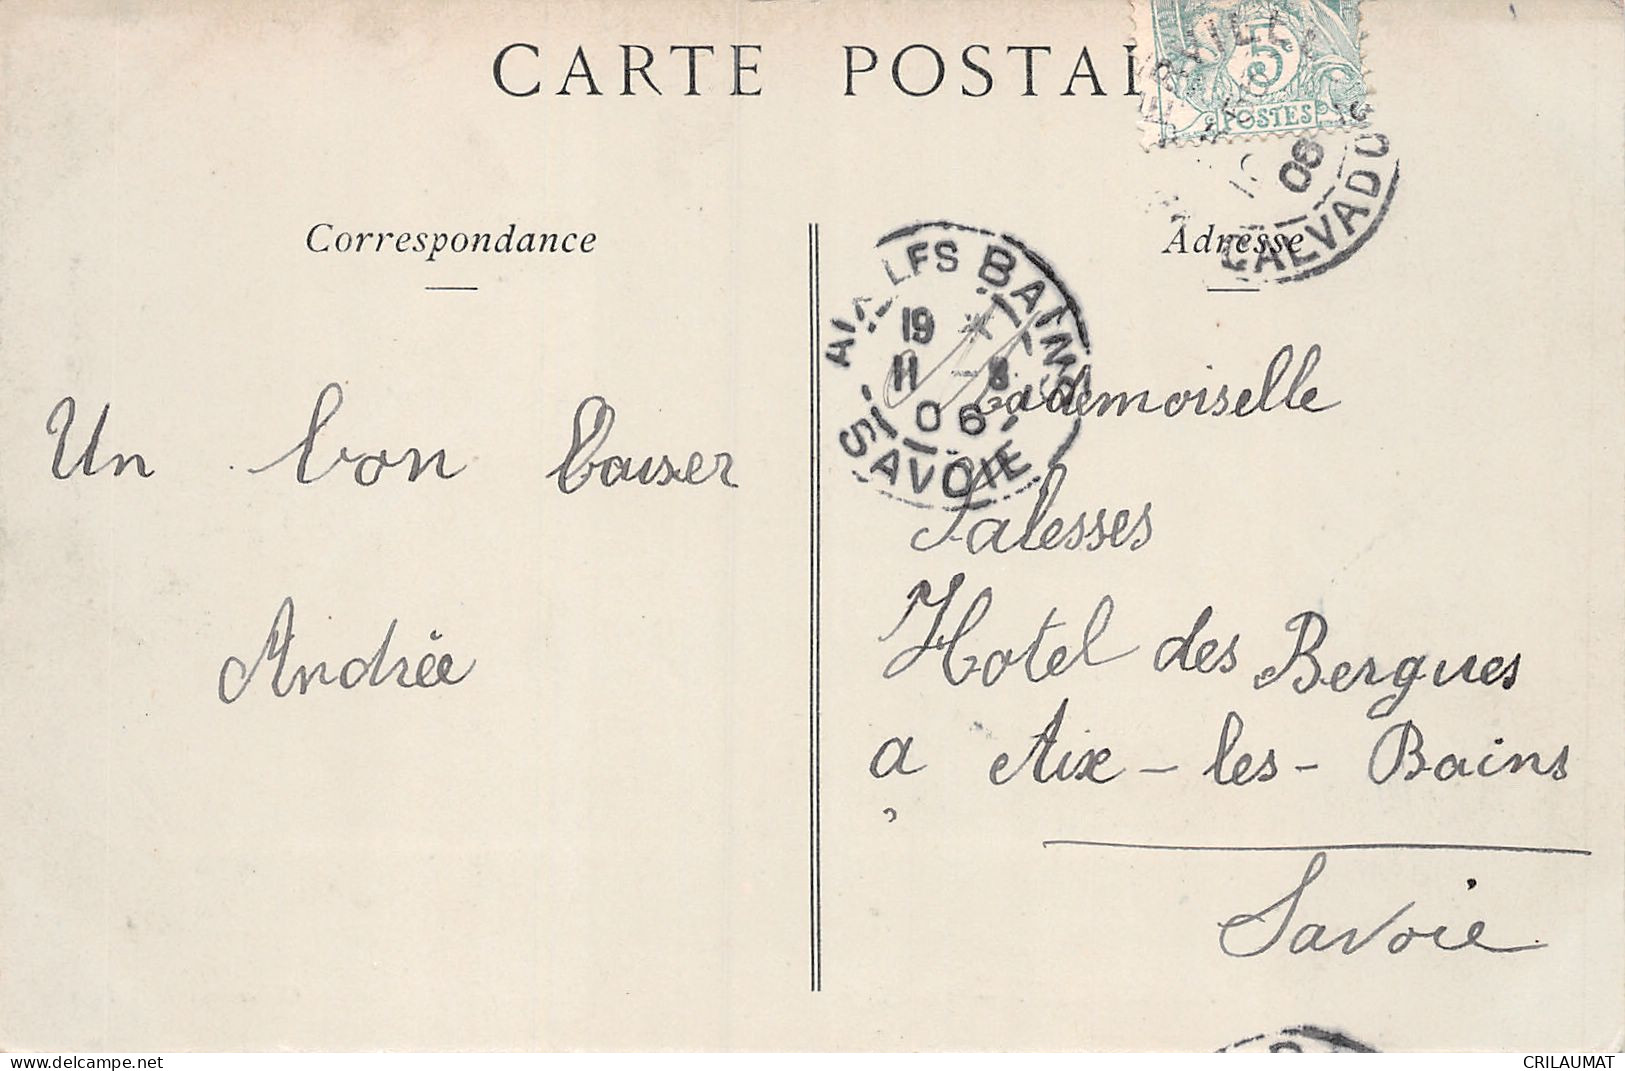 CARTE POSTAL
5
POSTES
CALVADO
06
Correspondance
Adresse
AIX LES BAINS
19
11 - 8
06
SAVOIE
Mademoiselle
Un bon baiser
Salesses
Andrée
Hotel des Bergues
a Aix - les - Bains
Savoie
www.delcampe.net
CRILAUMAT